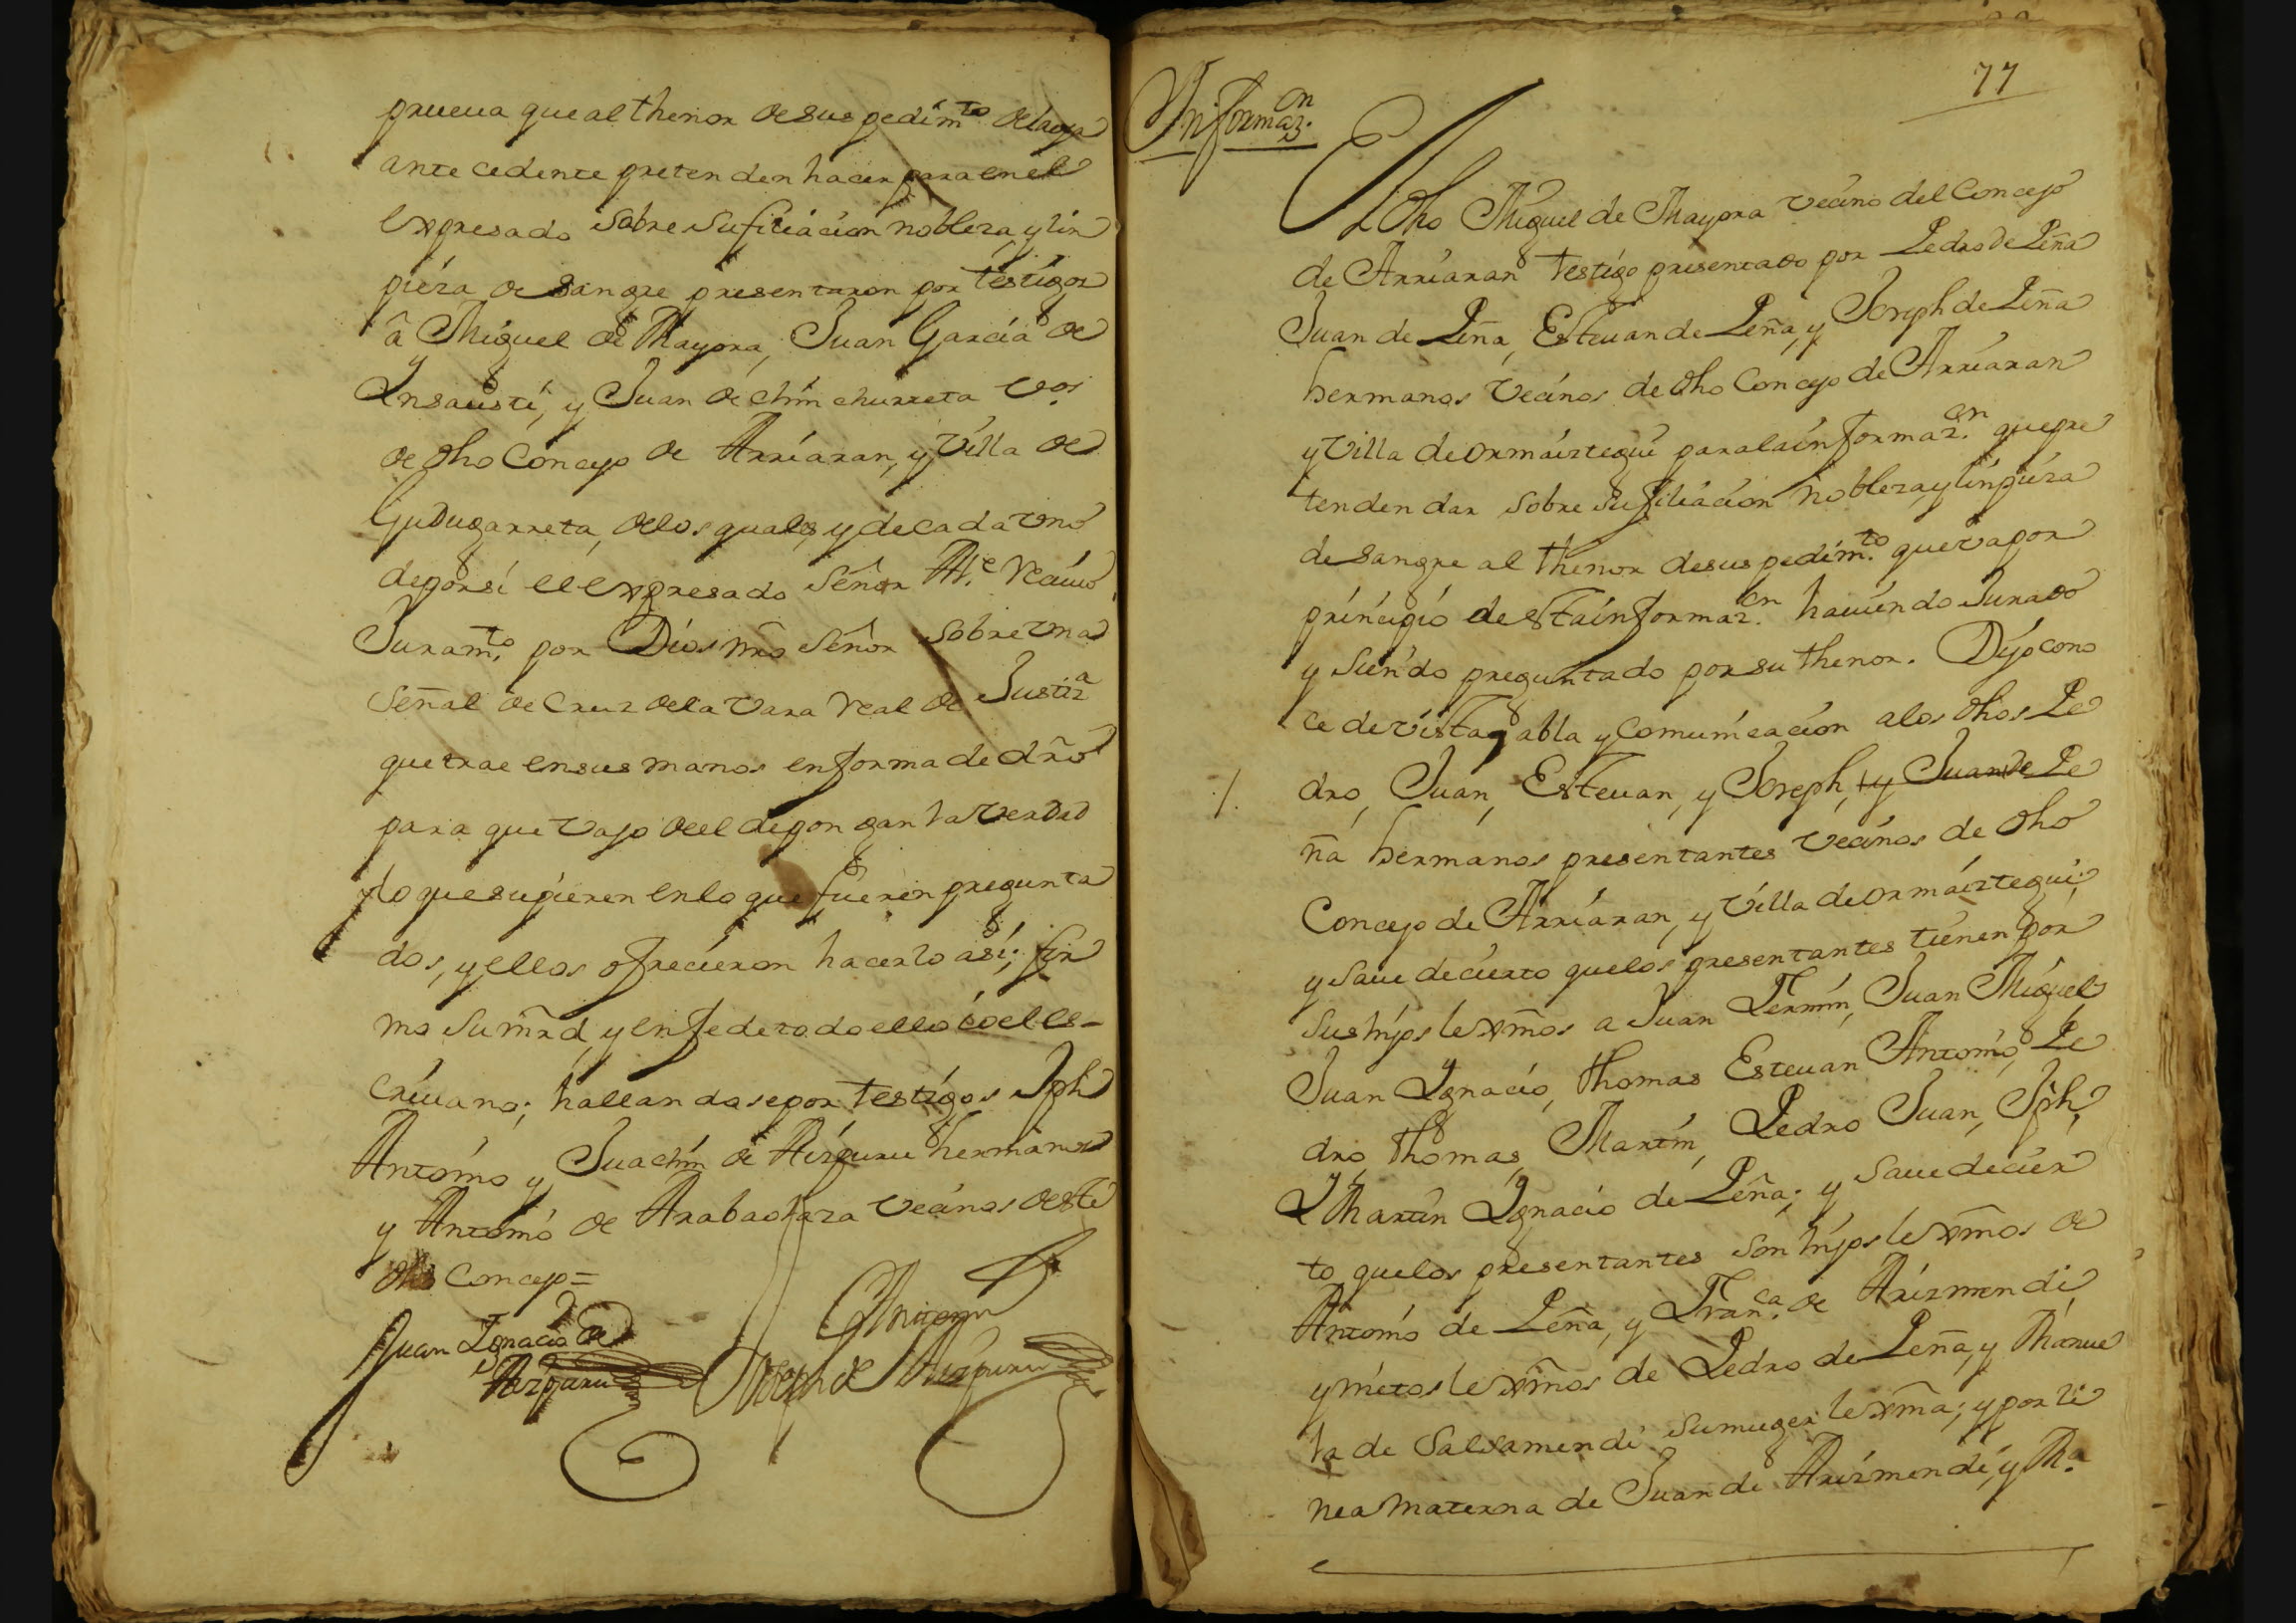 prueua que al thenor de sus pedim.to de la oja
antecedente pretenden hacer para en el
expresado sobre su filiacion nobleza, y lin
pieza de sangre presentaron por testigos
â Miguel de Mayora, Juan Garcia de
Ynsausti, y Juan de chinchurreta v.os
de dho Concejo de Arriaran, y Villa de
Gudugarreta, de los quales, y de cada vno
de por si el expresado Señor Al.e Reciuio
Juram.to por Dios nro Señor sobre vna
Señal de Cruz de la Vara Real de Justiz.a
que trae en sus manos en forma de dr̃o
para que vajo de el depongan la verdad
de lo que supieren en lo que fueren pregunta
dos, y ellos ofrecieron hacerlo asi; fir
mo su mr̃d, y en fe de todo ello io el es-
criuano; hallandose por testigos Jph
Antonio y Juachin de Aizpuru hermanos
y Antonio de Arabaolaza vecinos deste
dho Concejo=
Juan Ygnacio de
Aizpuru
Ante mi
Joseph de Aizpuru
77
Ynformaz.on
El dho Miguel de Mayora vecino del Concejo
de Arriaran testigo presentado por Pedro de Peña
Juan de Peña, Esteuan de Peña, y Joseph de Peña
hermanos vecinos de dho Concejo de Arriaran
y Villa de ormaiztegui para la informaz.on que pre
tenden dar sobre su filiacion nobleza y linpieza
de sangre al thenor de sus pedim.to que va por
principio de esta informaz.on hauiendo Jurado
y siendo preguntado por su thenor. Dijo cono
ce de vista, abla y comunicacion a los dhos Pe
./. dro, Juan, Esteuan, y Joseph, y Juan de Pe
ña hermanos presentantes vecinos de dho
Concejo de Arriaran, y Villa de ormaiztegui;
y saue de cierto que los presentantes tienen por
sus hijos lexmos a Juan Fermin, Juan Miguel,
Juan Ygnacio, Thomas Esteuan Antonio, Pe
dro, Thomas, Martin, Pedro Juan, Jph,
Y Martin Ygnacio de Peña; y saue de cier
to que los presentantes son hijos lexmos de
Antonio de Peña, y Fran.ca de Arizmendi,
y nietos lexmos de Pedro de Peña, y Manue
la de Salsamendi su muger lexma; y por li
nea materna de Juan de Arizmendi, y M.a